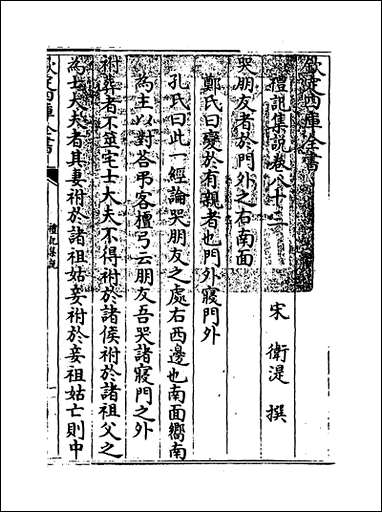 欽定四庫全書
禮記集說卷八十二
宋 衛湜 撰
哭朋友者於門外之右南面
鄭氏曰變於有親者也門外寢門外
孔氏曰此一經論哭朋友之處右西邊也南面嚮南
為主以對答弔客檀弓云朋友吾哭諸寢門之外
祔葬者不筮宅士大夫不得祔於諸侯祔於諸祖父之
為士大夫者其妻祔於諸祖姑妾祔於妾祖姑亡則中
欽定四庫全書
禮記集說
一